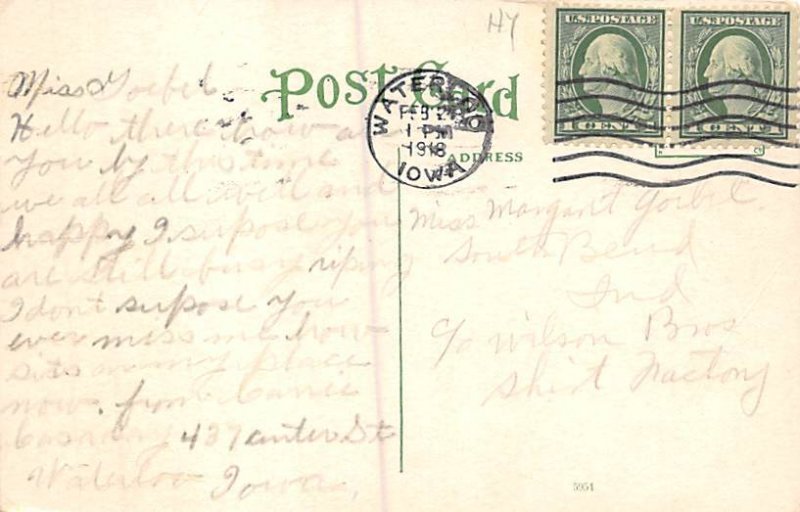 HY
U.S. POSTAGE U.S. POSTAGE
1 CENT 1 1 CENT 1
Post Card
WATERLOO
FEB 2
1 PM
1918
IOWA
ADDRESS
Miss Goebel
Hello there how are
you by this time
we all all well and
happy I supose you
are still busy riping
I dont supose you
ever miss me how
sits in my place
now. from
437 St
Waterloo Iowa.
Miss Margaret Goebel.
South Bend
Ind
c/o Wilson Bros
Shirt Factory
5954